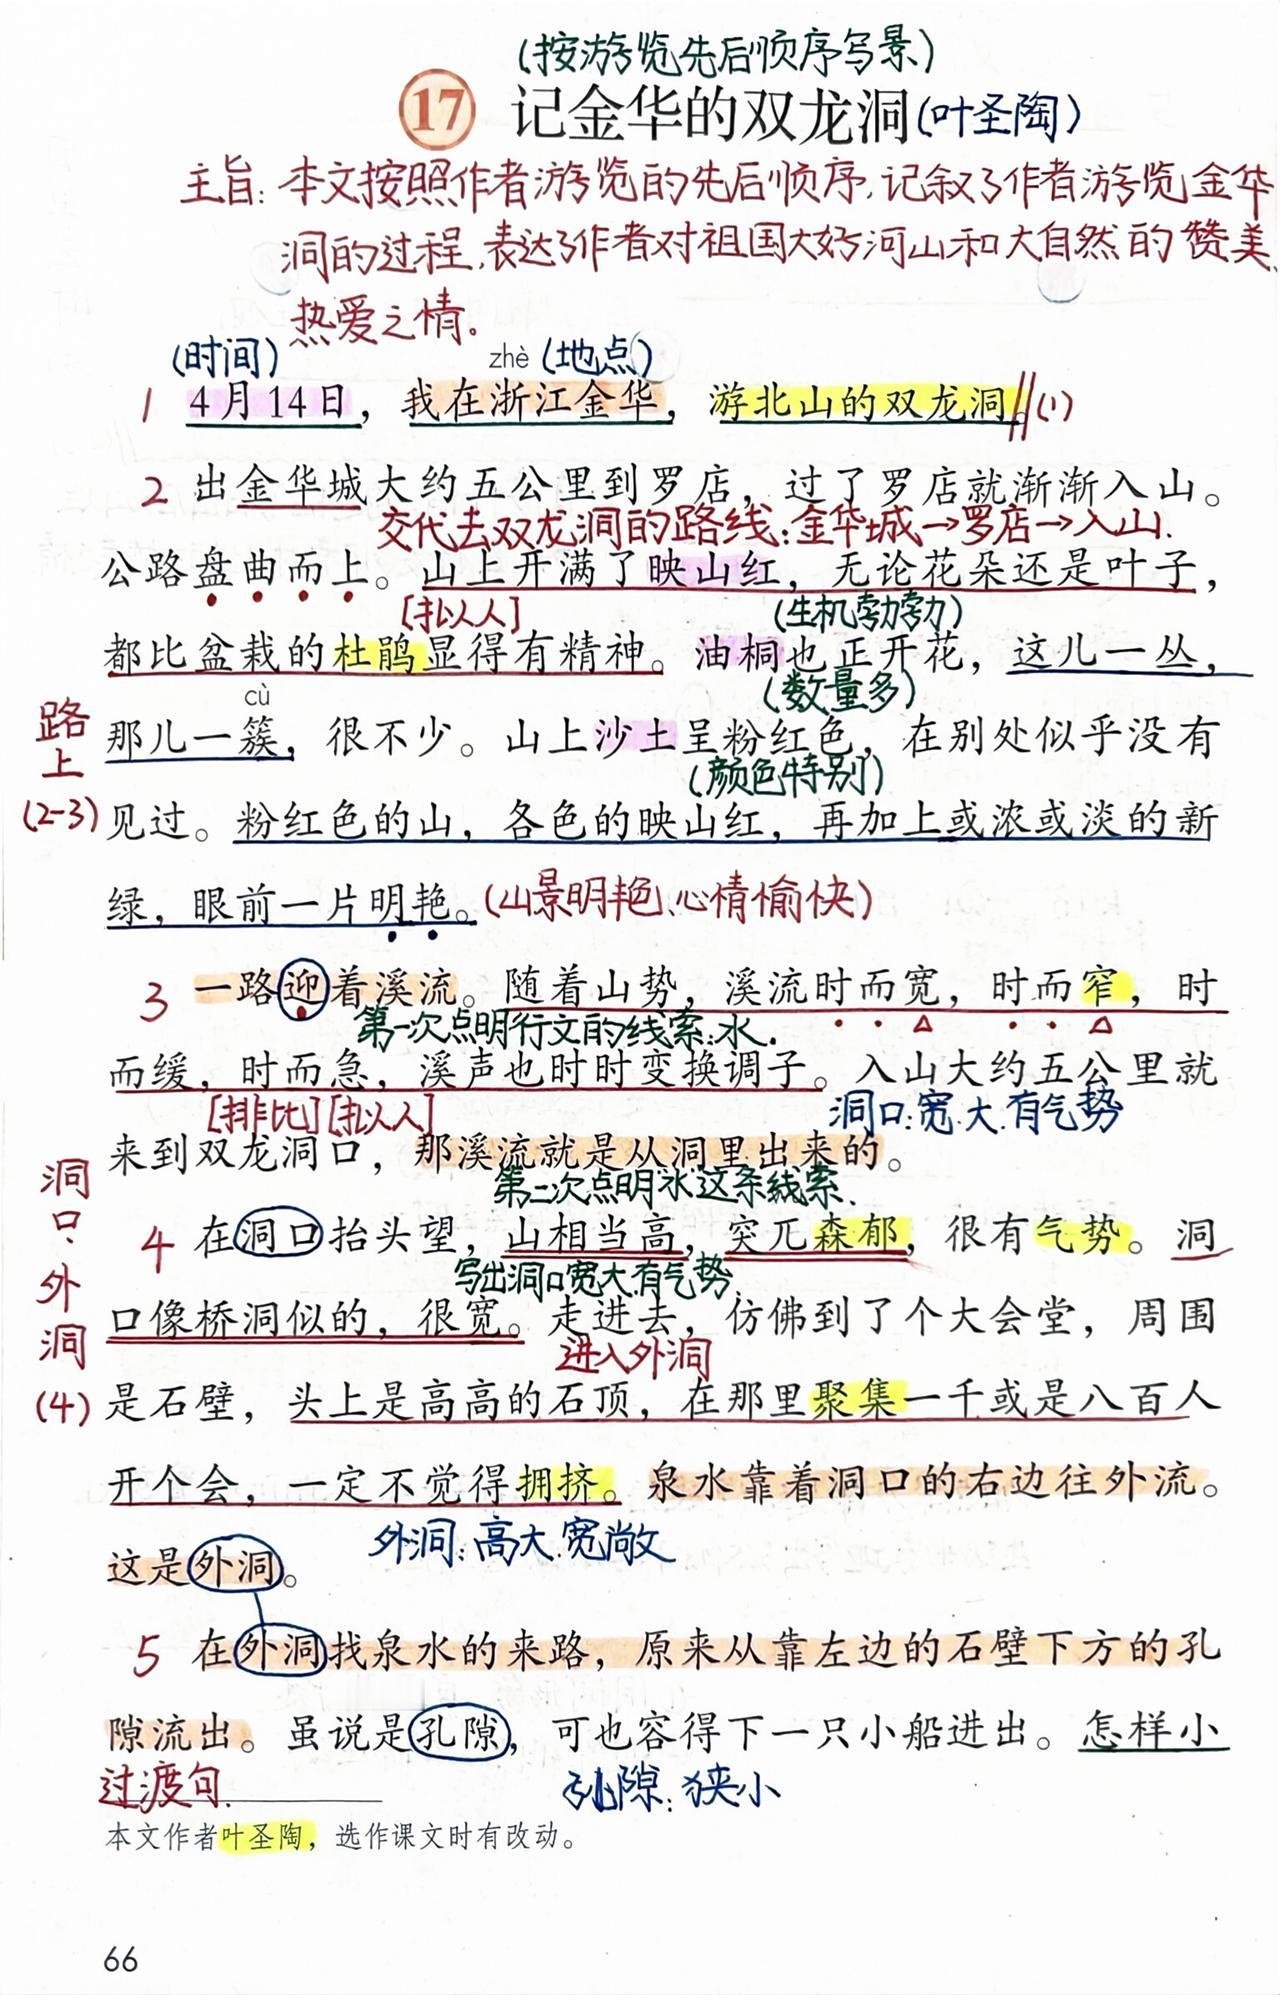 (按游览先后顺序写景)
17 记金华的双龙洞(叶圣陶)
主旨:本文按照作者游览的先后顺序,记叙了作者游览金华
洞的过程,表达了作者对祖国大好河山和大自然的赞美、
热爱之情。
(时间) zhè (地点)
1 4月14日,我在浙江金华,游北山的双龙洞。(1)
2 出金华城大约五公里到罗店,过了罗店就渐渐入山。
交代去双龙洞的路线:金华城→罗店→入山.
公路盘曲而上。山上开满了映山红,无论花朵还是叶子,
[拟人] (生机勃勃)
都比盆栽的杜鹃显得有精神。油桐也正开花,这儿一丛,
cù (数量多)
路上(2-3)
那儿一簇,很不少。山上沙土呈粉红色,在别处似乎没有
(颜色特别)
见过。粉红色的山,各色的映山红,再加上或浓或淡的新
绿,眼前一片明艳。(山景明艳、心情愉快)
3 一路迎着溪流。随着山势,溪流时而宽,时而窄,时
第一次点明行文的线索:水.
而缓,时而急,溪声也时时变换调子。入山大约五公里就
[排比][拟人] 洞口:宽.大.有气势
来到双龙洞口,那溪流就是从洞里出来的。
第二次点明水这条线索.
洞口、外洞(4)
4 在洞口抬头望,山相当高,突兀森郁,很有气势。洞
写出洞口宽大有气势
口像桥洞似的,很宽。走进去,仿佛到了个大会堂,周围
进入外洞
是石壁,头上是高高的石顶,在那里聚集一千或是八百人
开个会,一定不觉得拥挤。泉水靠着洞口的右边往外流。
外洞:高大.宽敞
这是外洞。
5 在外洞找泉水的来路,原来从靠左边的石壁下方的孔
隙流出。虽说是孔隙,可也容得下一只小船进出。怎样小
过渡句. 孔隙:狭小
本文作者叶圣陶,选作课文时有改动。
66